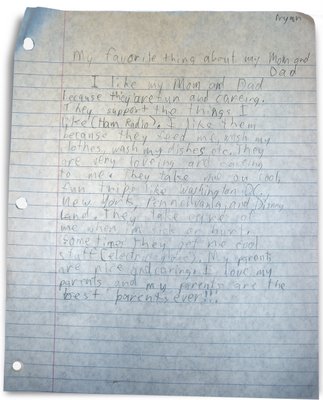 Aryan
My favorite thing about my Mom and
Dad
I like my Mom and Dad
because they are fun and careing.
They support the things I
like (Ham Radio). I like them
because they feed me, wash my
clothes, wash my dishes etc. They
are very loveing and careing
to me. They take me on cool
fun trips like washington DC,
New York, Pennsylvania, and Disney
land. They take care of
me when I'm sick or hurt.
Sometimes they get me cool
stuff (electronics). My parents
are nice and caring. I love my
parents and my parents are the
best parents ever!!!